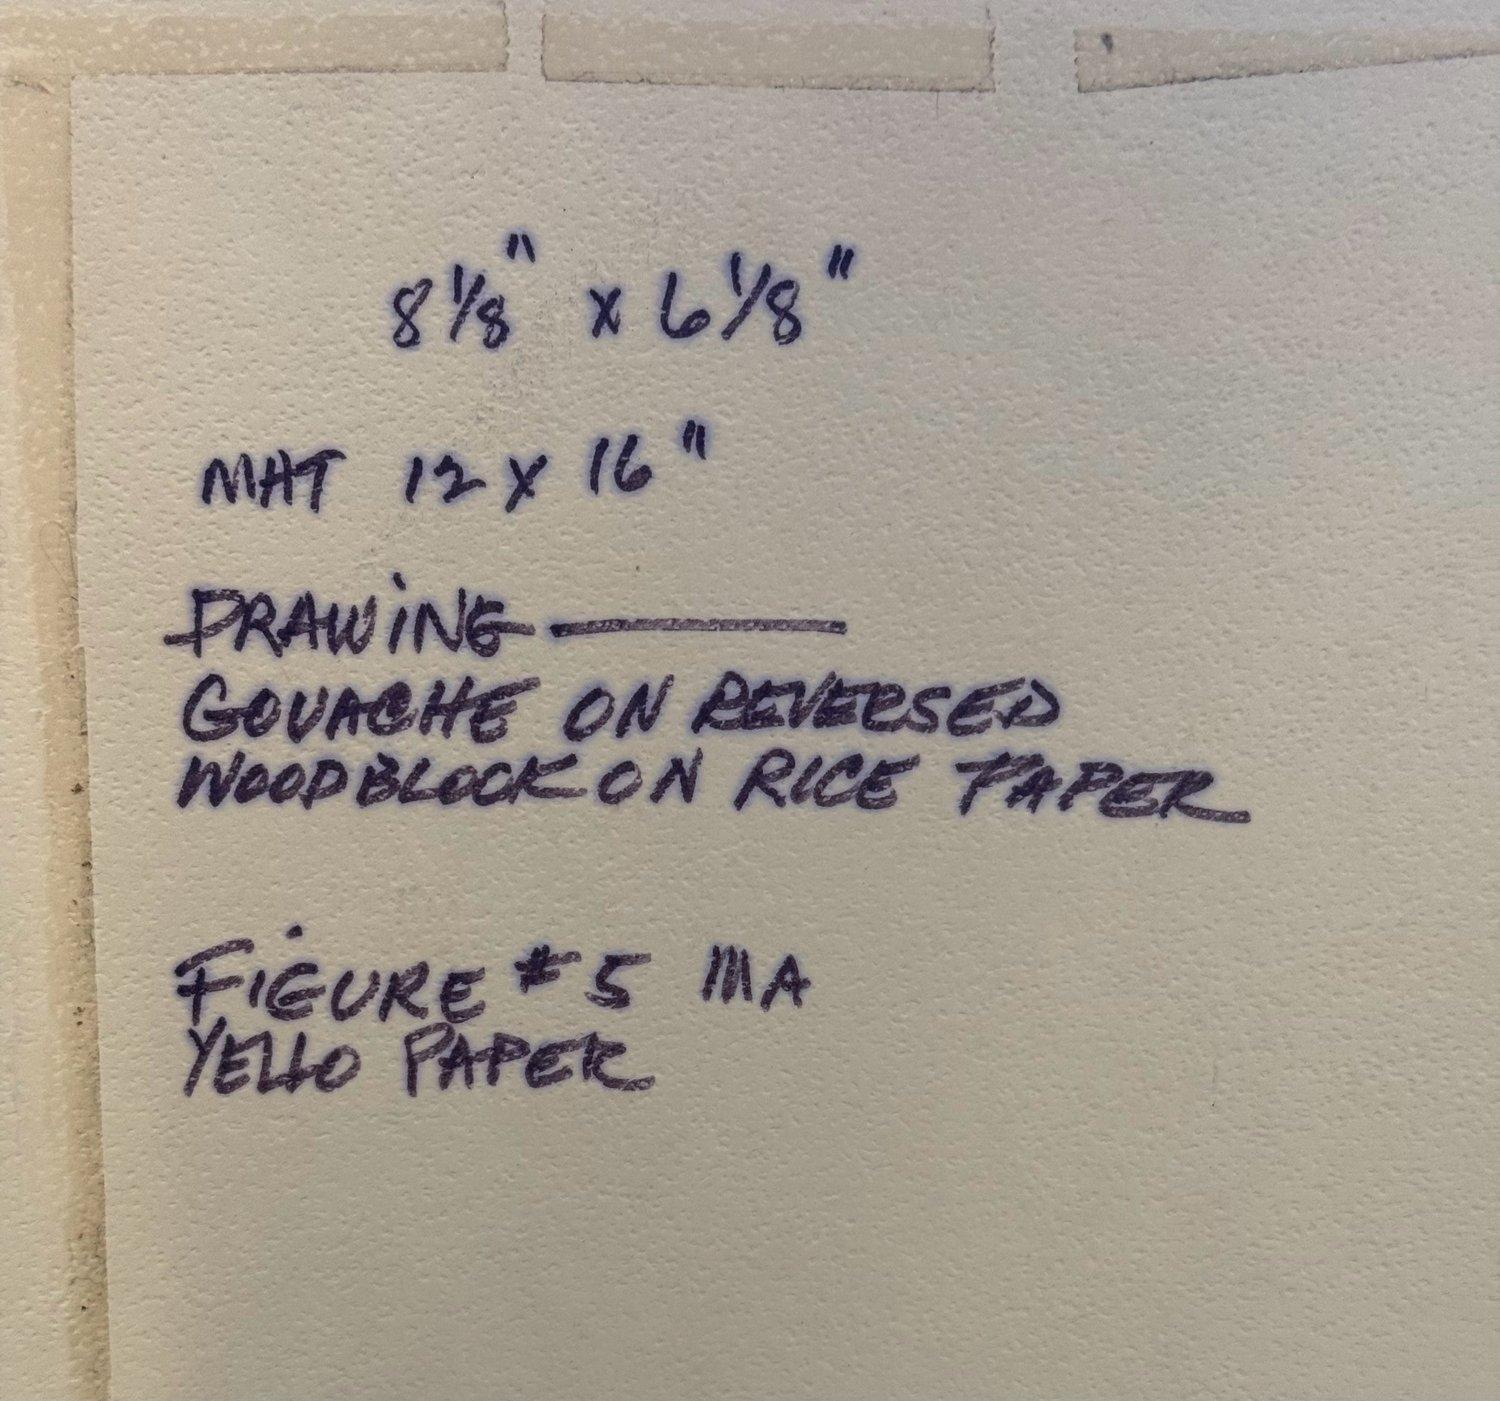 8 1/8" x 6 1/8"
MAT 12 x 16"
DRAWiNG —
GOUACHE ON REVERSED
WOODBLOCK ON RICE PAPER
FIGURE #5 IIIA
YELLO PAPER